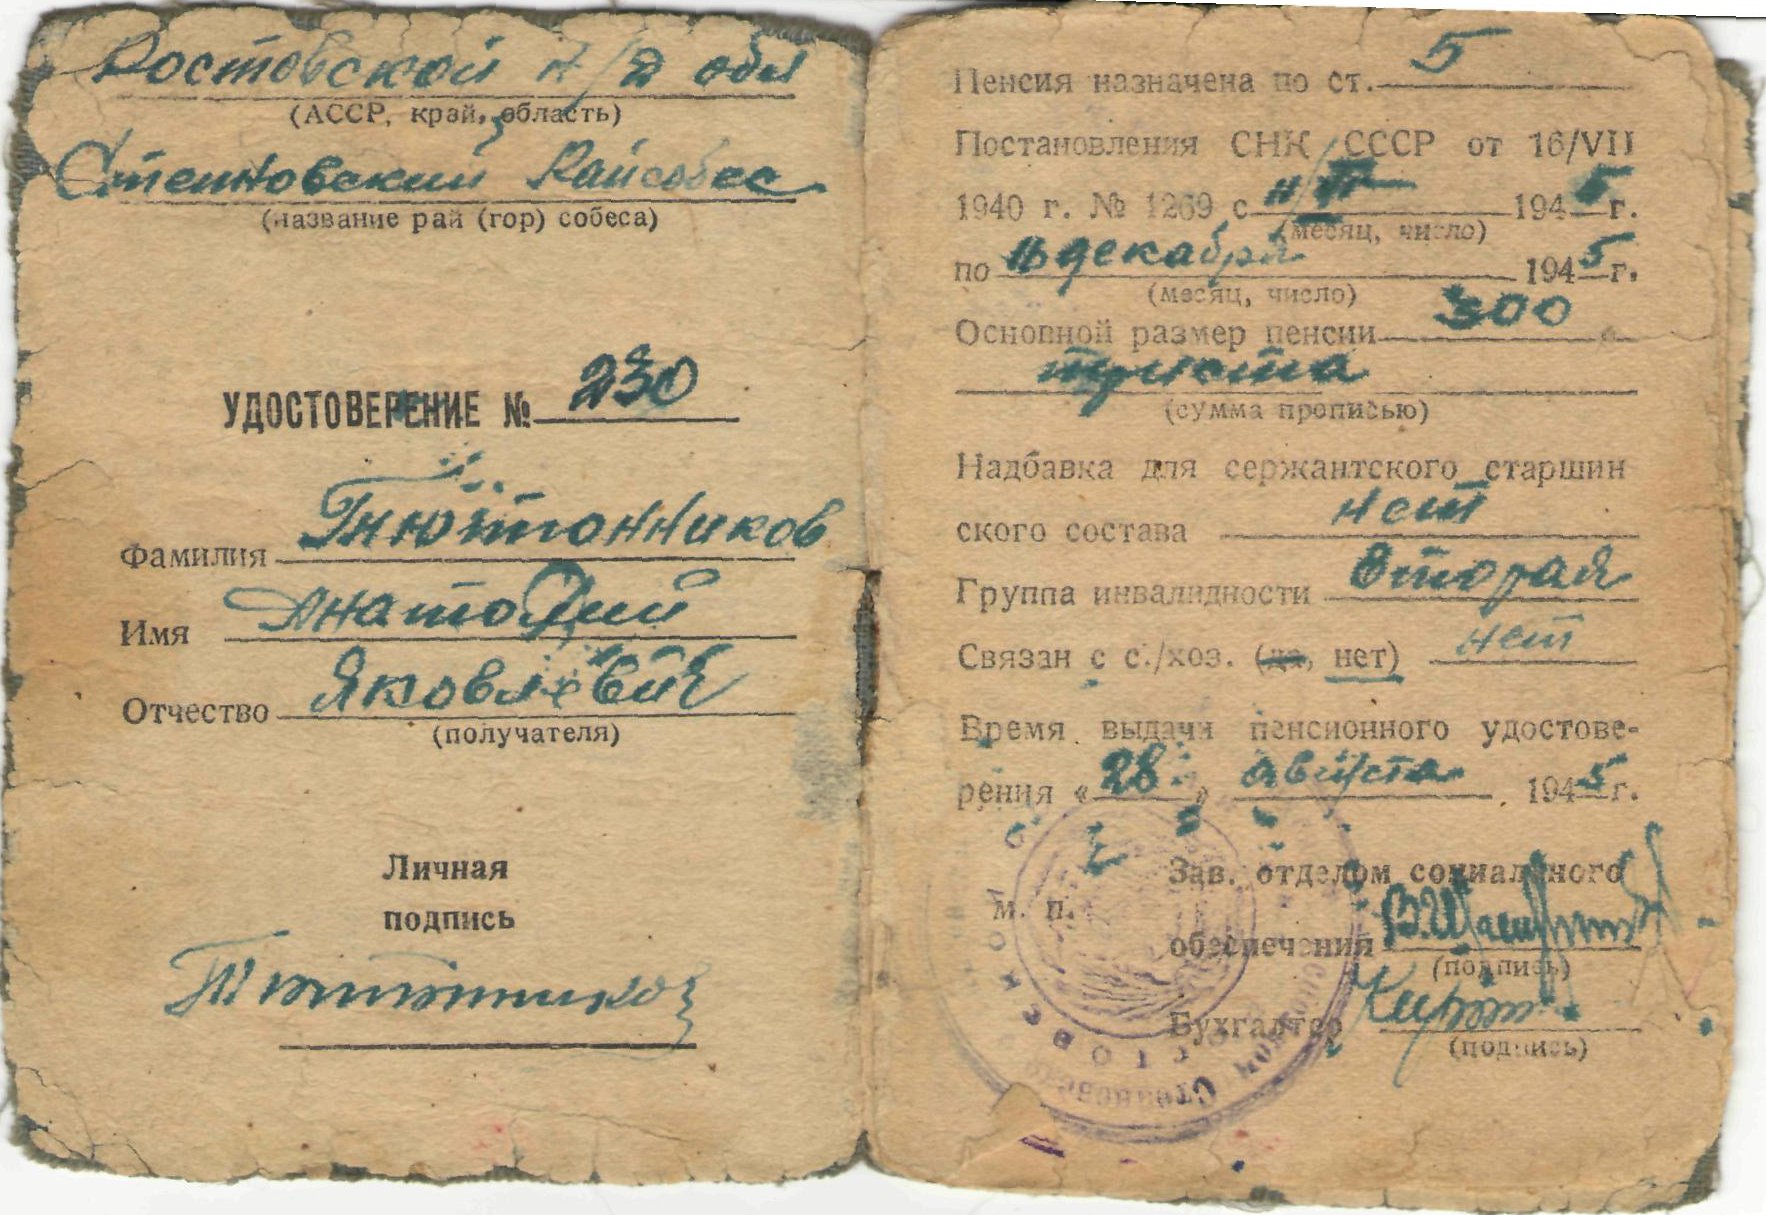 Ростовской н/Д обл
(АССР, край, область)
Райсобес
(название рай (гор) собеса)
УДОСТОВЕРЕНИЕ № 230
Фамилия Тютюнников
Имя Анатолий
Отчество Яковлевич
(получателя)
Личная
подпись
Пенсия назначена по ст. 5
Постановления СНК СССР от 16/VII
1940 г. № 1269 с 1945 г.
(месяц, число)
по декабря 1945 г.
(месяц, число)
Основной размер пенсии 300
триста
(сумма прописью)
Надбавка для сержантского старшин
ского состава нет
Группа инвалидности вторая
Связан с с./хоз. (да, нет) нет
Время выдачи пенсионного удостове-
рения «28» августа 1945 г.
Зав. отделом социального
м. п.
обеспечения
(подпись)
Бухгалтер
(подпись)